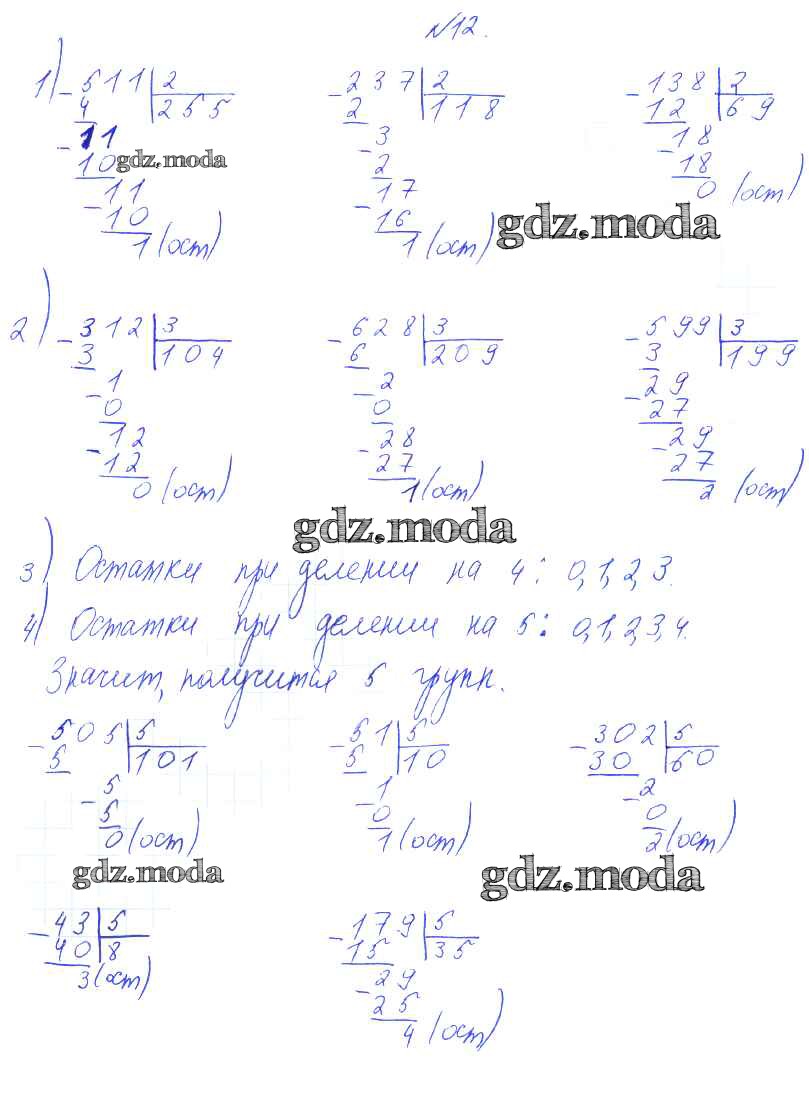 №12.
1) - 511 | 2   - 237 | 2   - 138 | 2
4 | 255   2 | 118   12 | 69
- 11   - 3   - 18
10   2   18
11   17   0 (ост)
- 10   - 16
1 (ост)   1 (ост)
gdz.moda
gdz.moda
2) - 312 | 3   - 628 | 3   - 599 | 3
3 | 104   6 | 209   3 | 199
- 1   - 2   - 29
0   0   27
- 12   - 28   - 29
12   27   27
0 (ост)   1 (ост)   2 (ост)
gdz.moda
3) Остатки при делении на 4: 0,1,2,3.
4) Остатки при делении на 5: 0,1,2,3,4.
Значит, получится 5 групп.
- 505 | 5   - 51 | 5   - 302 | 5
5 | 101   5 | 10   30 | 60
- 5   - 1   - 2
5   0   0
0 (ост)   1 (ост)   2 (ост)
gdz.moda   gdz.moda
- 43 | 5   - 179 | 5
40 | 8   15 | 35
3 (ост)   - 29
25
4 (ост)